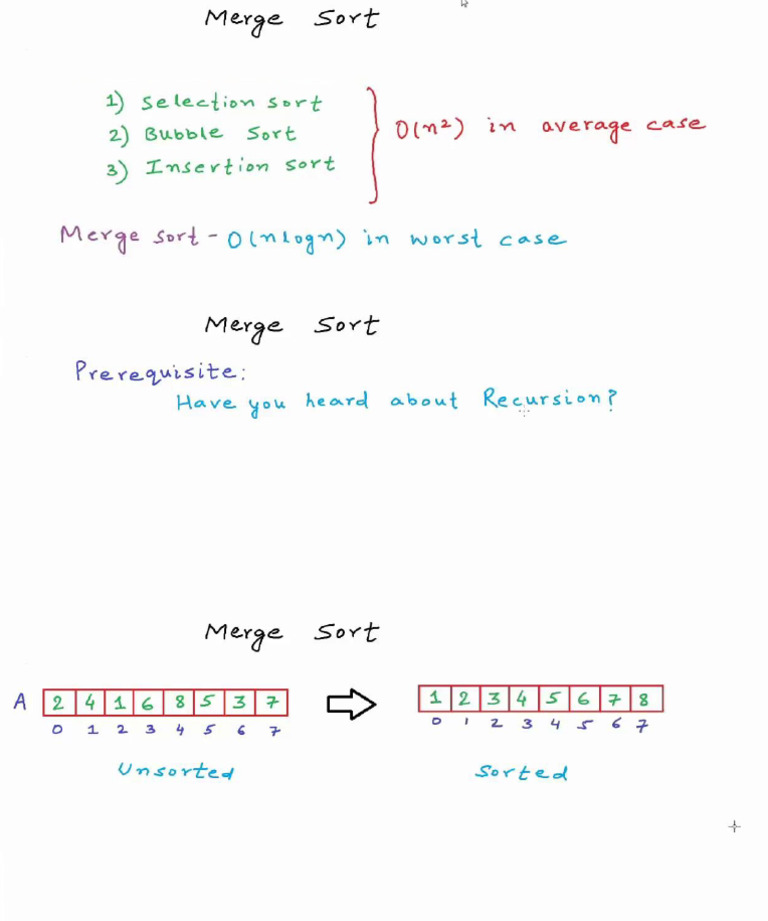 Merge Sort
1) Selection sort
2) Bubble Sort
3) Insertion sort
O(n²) in average case
Merge sort - O(nlogn) in worst case
Merge Sort
Prerequisite:
Have you heard about Recursion?
Merge Sort
A 2 4 1 6 8 5 3 7
0 1 2 3 4 5 6 7
Unsorted
1 2 3 4 5 6 7 8
0 1 2 3 4 5 6 7
Sorted